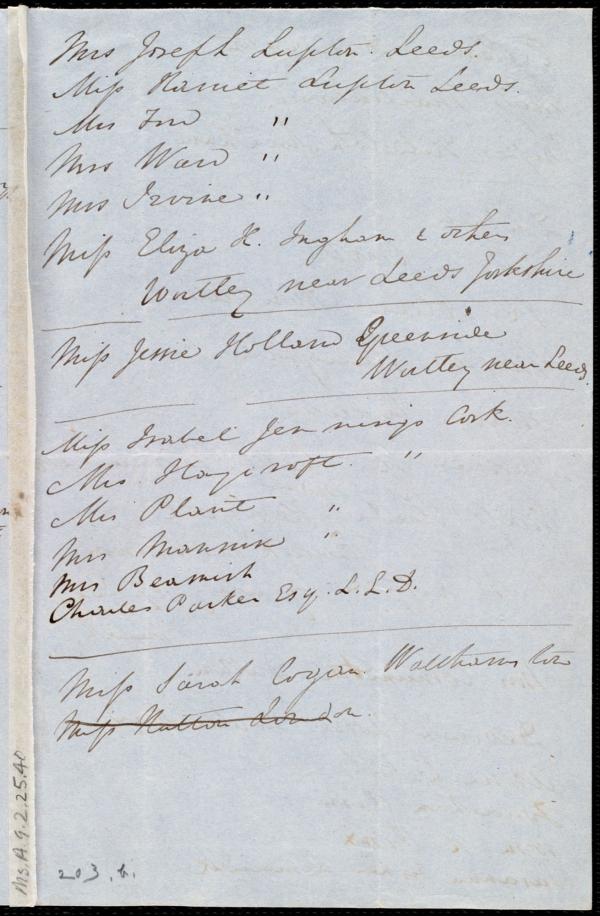 Mrs Joseph Lupton. Leeds.
Miss Harriet Lupton Leeds.
Mrs "
Mrs Ward "
Mrs Irvine "
Miss Eliza H. Ingham & others
Wortley near Leeds Yorkshire
Miss Jessie Holland Greenside
Wortley near Leeds.
Miss Isabel Jennings Cork.
Mrs Haycroft. "
Mrs Plant "
Mrs Mannix "
Mrs Beamish
Charles Parker Esq. L.L.D.
Miss Sarah Cogan. Walthamstow
Miss Hutton London.
Ms.A.9.2.25.40
203.b.